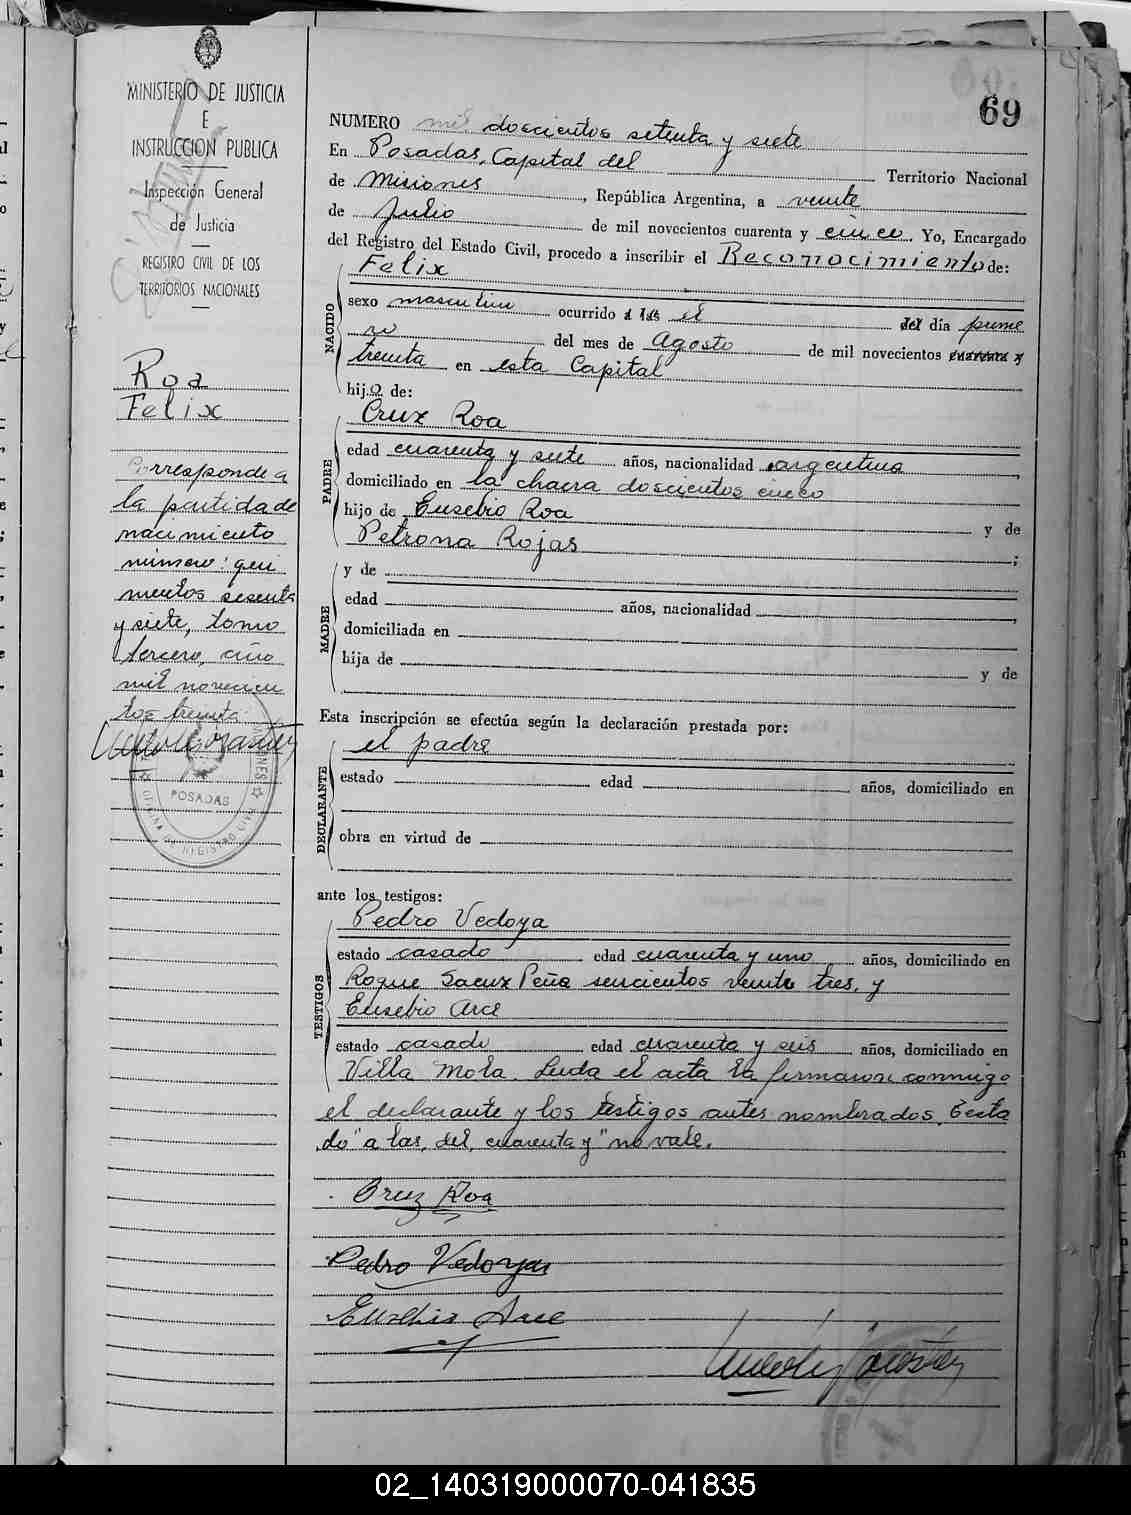 69
MINISTERIO DE JUSTICIA
E
INSTRUCCION PUBLICA
Inspección General
de Justicia
REGISTRO CIVIL DE LOS
TERRITORIOS NACIONALES
Roa
Felix
Corresponde a
la partida de
nacimiento
número: qui
nientos sesenta
y siete, tomo
tercero, año
mil novecien
tos treinta
POSADAS
NUMERO mil doscientos setenta y siete
En Posadas, Capital del Territorio Nacional
de Misiones, República Argentina, a veinte
de Julio de mil novecientos cuarenta y cinco. Yo, Encargado
del Registro del Estado Civil, procedo a inscribir el Reconocimiento de:
NACIDO
Felix
sexo masculino ocurrido a las el del día prime
ro del mes de Agosto de mil novecientos cuarenta y
treinta en esta Capital
hijo de:
PADRE
Cruz Roa
edad cuarenta y siete años, nacionalidad argentina
domiciliado en la chacra doscientos cinco
hijo de Eusebio Roa y de
Petrona Rojas ;
MADRE
y de
edad años, nacionalidad ,
domiciliada en
hija de y de
Esta inscripción se efectúa según la declaración prestada por:
DECLARANTE
el padre
estado edad años, domiciliado en
obra en virtud de
ante los testigos:
TESTIGOS
Pedro Vedoya
estado casado edad cuarenta y uno años, domiciliado en
Roque Saenz Peña seiscientos veinte tres, y
Eusebio Arce
estado casado edad cuarenta y seis años, domiciliado en
Villa Mola. Leida el acta la firmaron conmigo
el declarante y los testigos antes nombrados. Testa
do "a las, del, cuarenta y" no vale.
Cruz Roa
Pedro Vedoya
Eusebio Arce
02_140319000070-041835